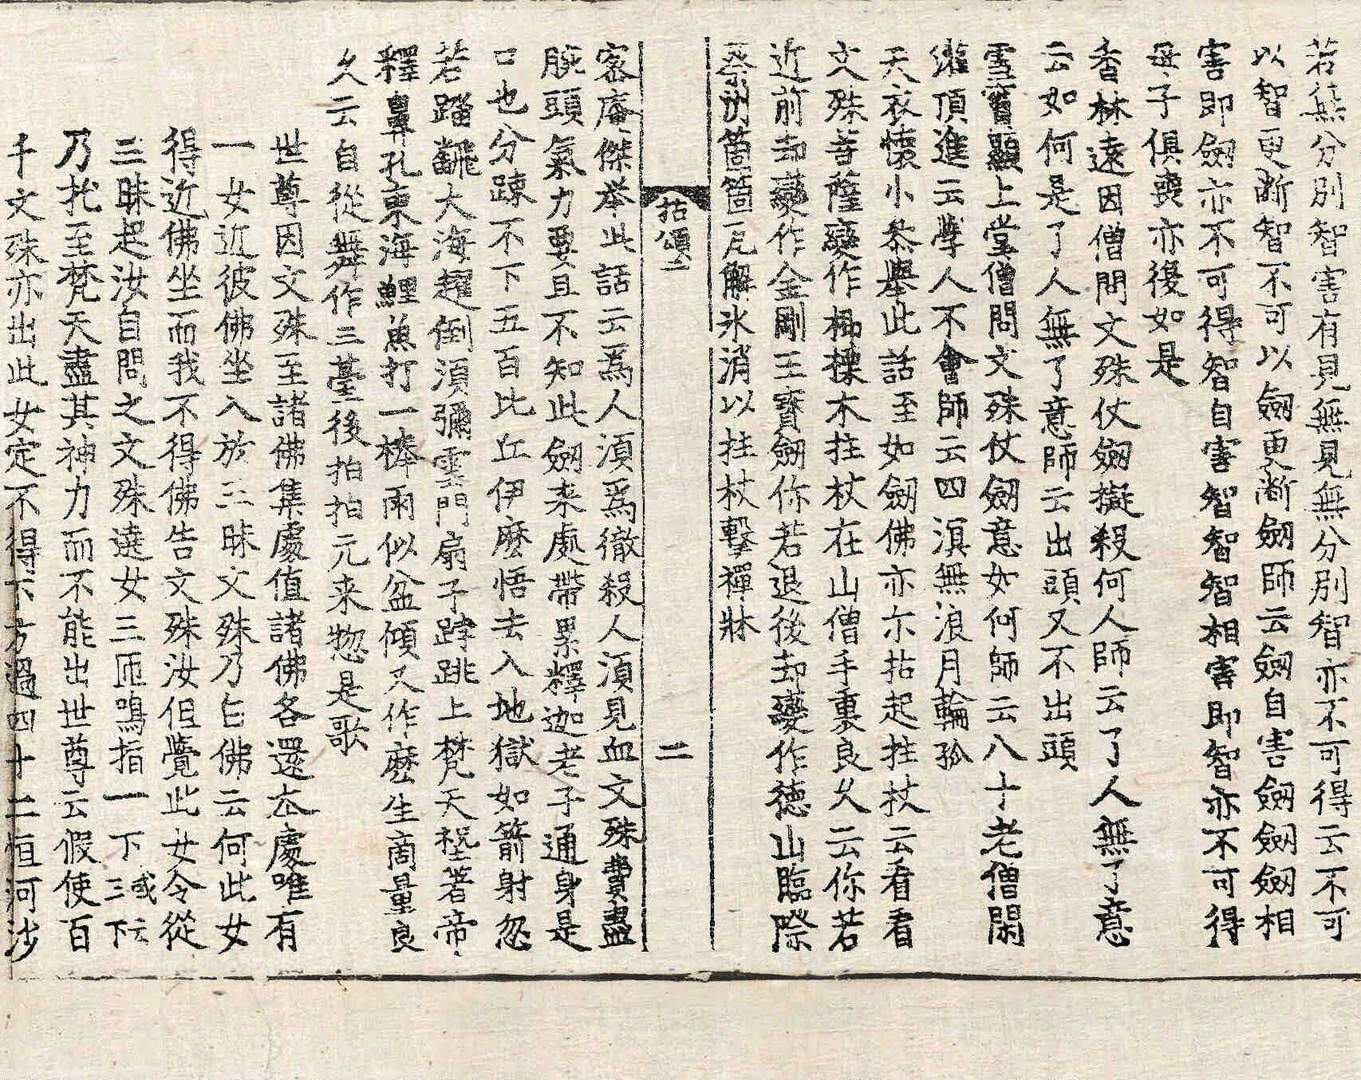 若無分別智害有見無見無分別智亦不可得云不可
以智更断智不可以劔更断劔師云劔自害劔劔相
害即劔亦不可得智自害智智智相害即智亦不可得
母子俱喪亦復如是
香林遠因僧問文殊仗劔擬殺何人師云了人無了意
云如何是了人無了意師云出頭又不出頭
雪竇顯上堂僧問文殊仗劔意如何師云八十老僧閑
灌頂進云學人不會師云四溟無浪月輪孤
天衣懷小叅舉此話至如劔佛亦尓拈起拄杖云看看
文殊菩薩變作楖㮚木拄杖在山僧手裏良久云你若
近前却變作金剛王寳劔你若退後却變作德山臨際
祭州箇箇瓦解氷消以拄杖擊禪牀
拈頌二
二
密庵傑举此話云爲人湏爲徹殺人湏見血文殊費盡
腕頭氣力要且不知此劔来處帶累釋迦老子通身是
口也分踈不下五百比丘伊麽悟去入地獄如箭射忽
若踏飜大海趯倒湏彌雲門扇子𨁝跳上梵天㘽著帝
釋鼻孔東海鯉魚打一棒雨似盆傾又作麽生商量良
久云自從舞作三䑓後拍拍元来惣是歌
世尊因文殊至諸佛集處值諸佛各還夲處唯有
一女近彼佛坐入於三昧文殊乃白佛云何此女
得近佛坐而我不得佛告文殊汝但覺此女令從
三昧起汝自問之文殊遶女三匝鳴指一下或云三下
乃托至梵天盡其神力而不能出世尊云假使百
千文殊亦出此女定不得下方過四十二恒河沙